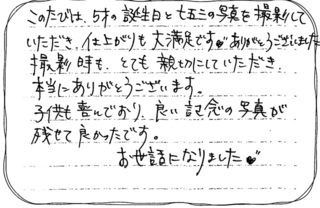 このたびは、5才の誕生日と七五三の写真を撮影して
いただき、仕上がりも大満足です♥ありがとうございました
撮影時も、とても親切にしていただき、
本当にありがとうございます。
子供も喜んでおり、良い記念の写真が
残せて良かったです。
お世話になりました♥